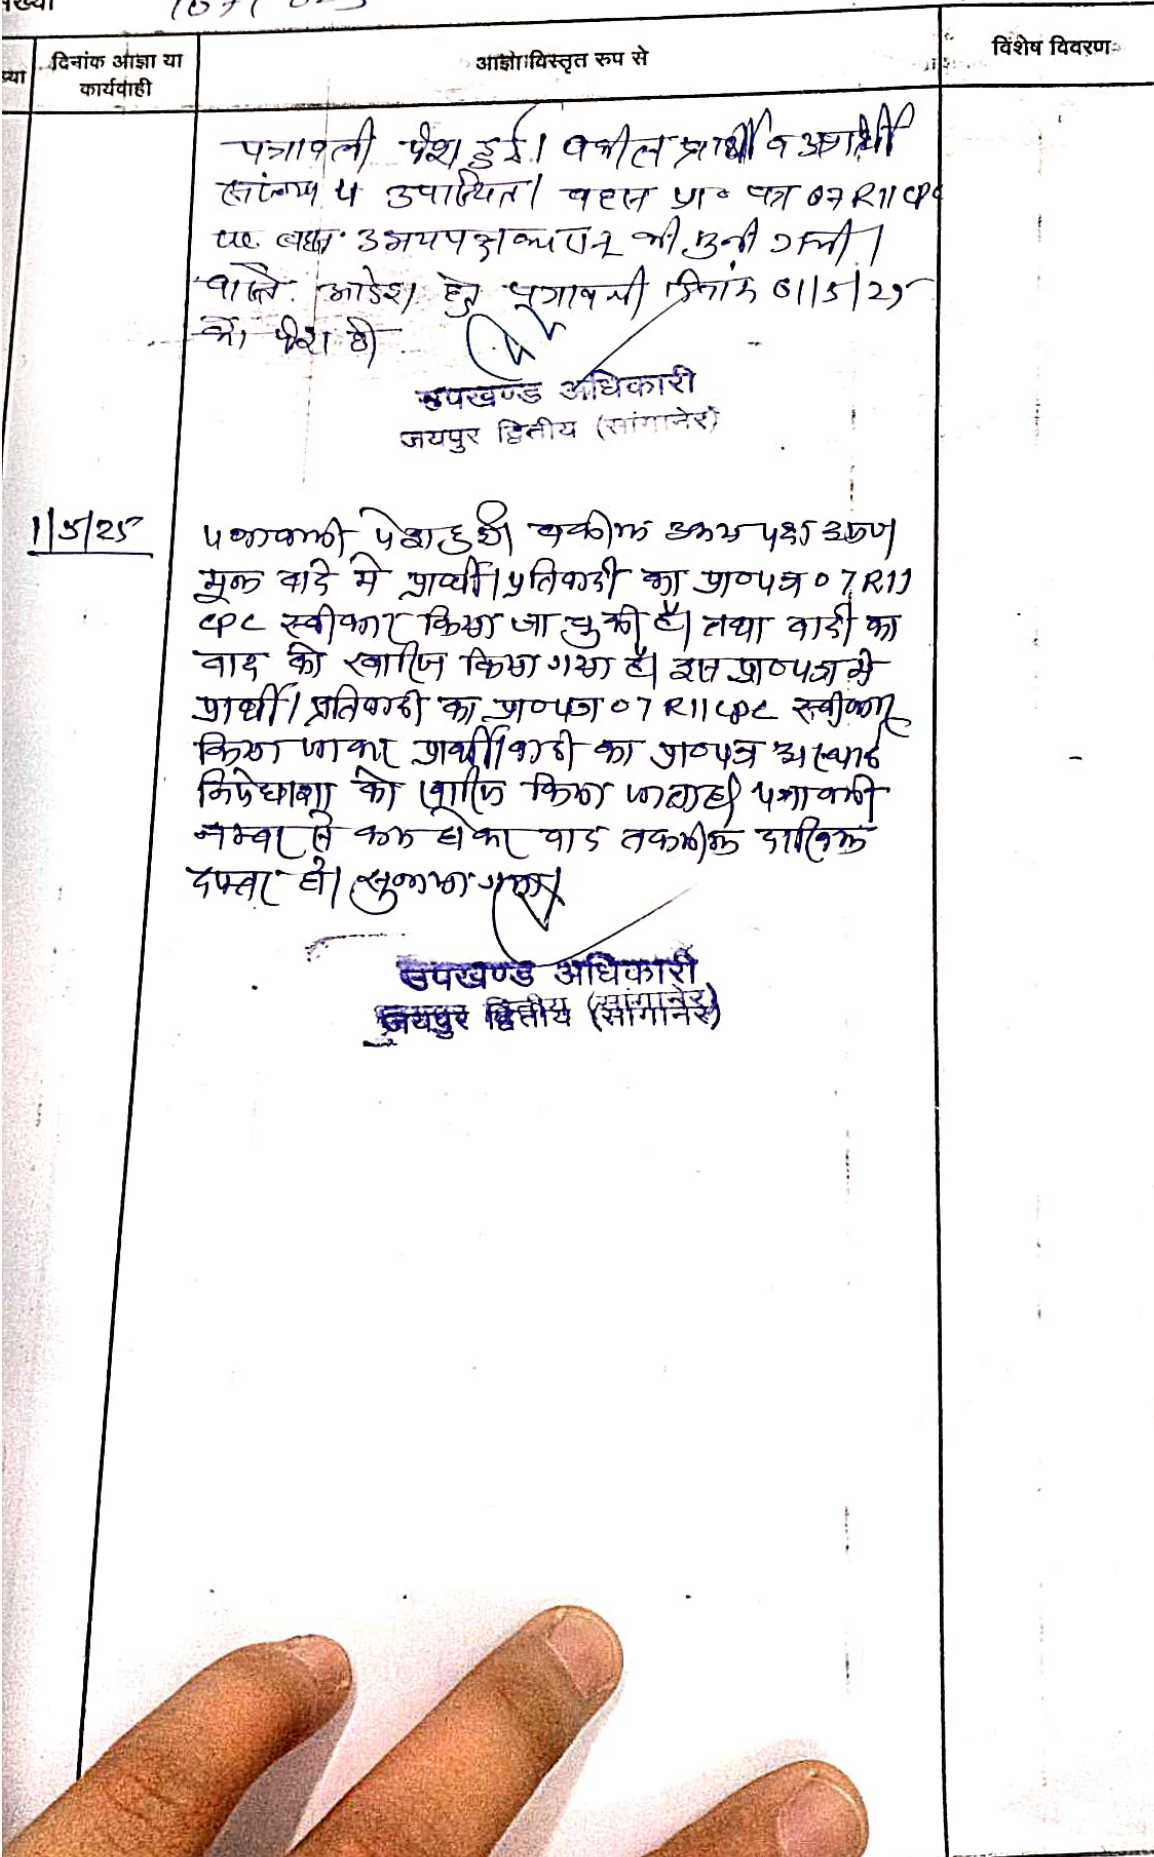 दिनांक आज्ञा या
कार्यवाही
आज्ञा विस्तृत रुप से
विशेष विवरण
पत्रावली पेश हुई। वकील प्रार्थी व अप्रार्थी
उपास्थित। बहस प्रा० पत्र 07 R11 CPC
पर बहस उभयपक्षकारान की सुनी गयी।
वास्ते आदेश हेतु पत्रावली दिनांक 01/5/25
को पेश हो
उपखण्ड अधिकारी
जयपुर द्वितीय (सांगानेर)
1/5/25
पत्रावली पेश हुयी वकील उभय पक्ष उप०
मूल वाद मे प्रार्थी/प्रतिवादी का प्रा०पत्र 07 R11
CPC स्वीकार किया जा चुकी है। तथा वादी का
वाद को खारिज किया गया है। इस प्रा०पत्र मे
प्रार्थी/प्रतिवादी का प्रा०पत्र 07 R11 CPC स्वीकार
किया जाकर प्रार्थी/वादी का प्रा०पत्र अस्थाई
निषेधाज्ञा को खारिज किया जाता है। पत्रावली
नम्बर से कम होकर वाद तकमील दाखिल
दफ्तर हो। सुनाया गया।
उपखण्ड अधिकारी
जयपुर द्वितीय (सांगानेर)